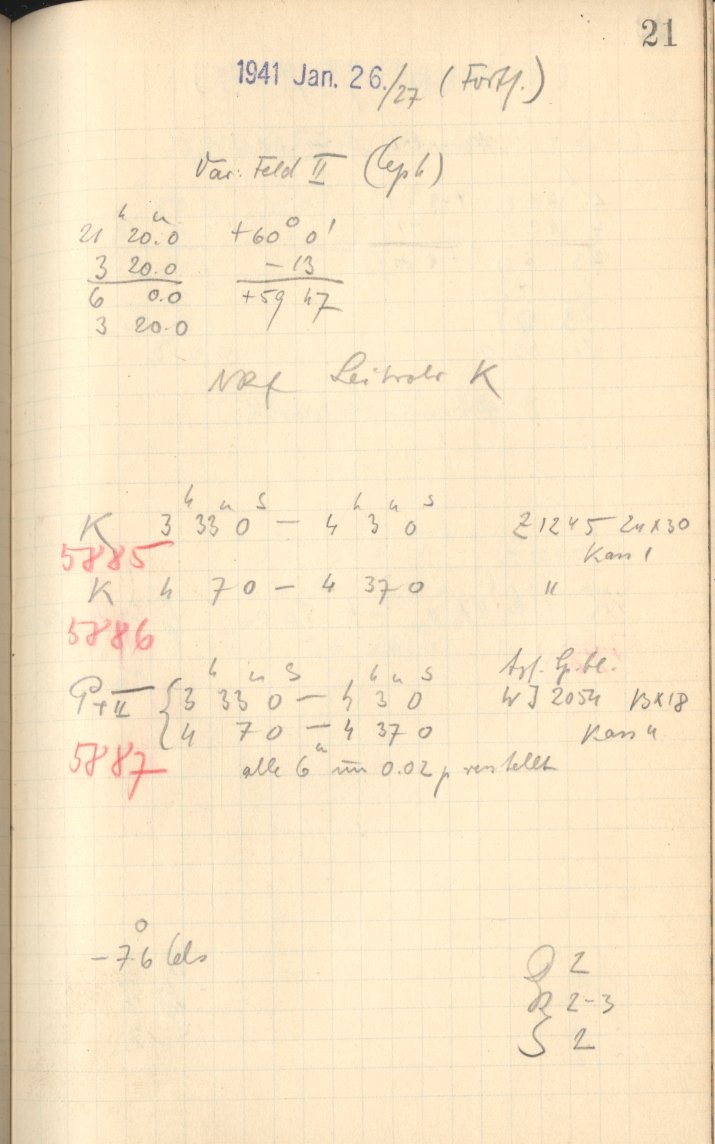 21
1941 Jan. 26./27 (Forts.)
Var. Feld II (Ceph)
21 h 20.0 m +60° 0'
3 20.0 -13
6 0.0 +59 47
3 20.0
Leitrohr K
K 3 h 33 m 0 s - 4 h 3 m 0 s Z 1245 24x30
5885 Kass 1
K 4 7 0 - 4 37 0 "
5886
P+II { 3 h 33 m 0 s - 4 h 3 m 0 s WJ 2054 13x18
4 7 0 - 4 37 0 Kass 4
5887 alle 6 m um 0.02 p verstellt
-7°6 Cels
Q 2
R 2-3
S 2